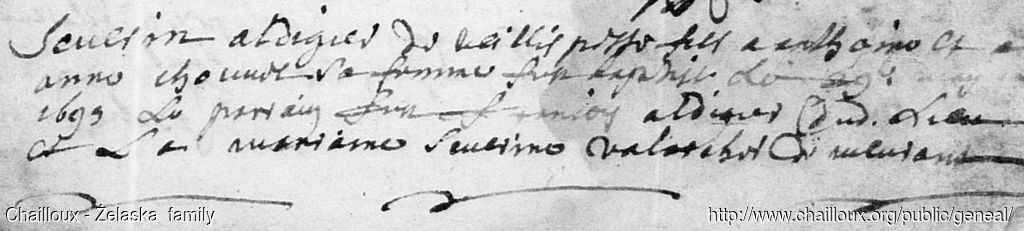 Severin aldigier de veillis pesse fils a anthoine et a
anne chouvet sa femme fust baptisé Le may
1693 Le parrain fust aldigier dud. Lieu
et La marraine Severine valaschier de
Chailloux - Żelaska family
http://www.chailloux.org/public/geneal/